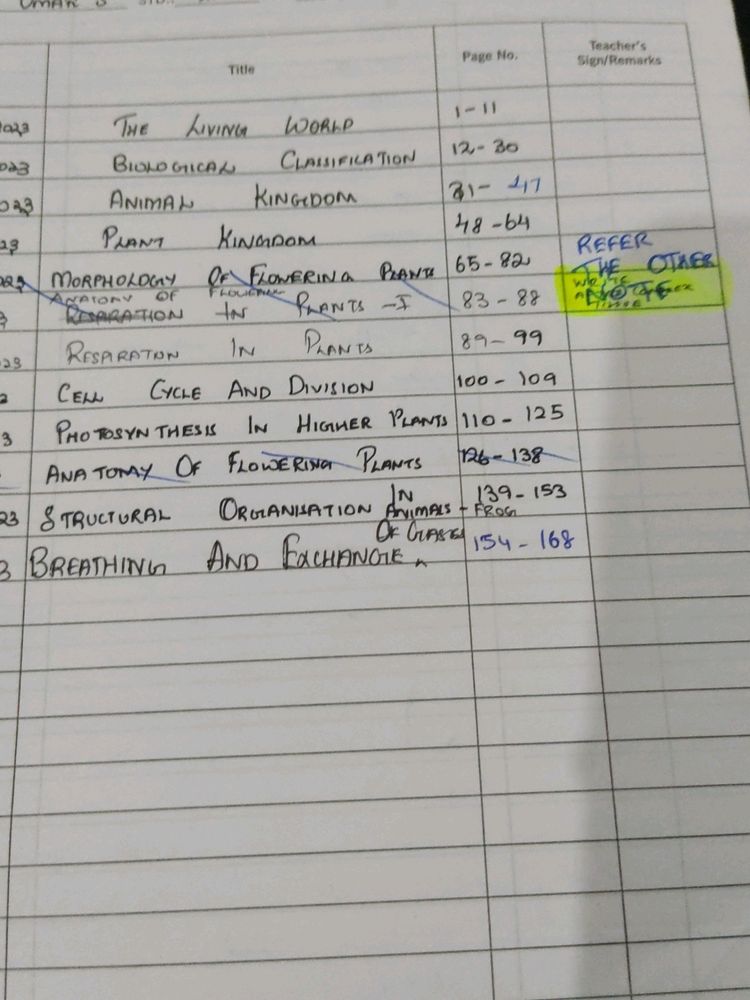 OMAR S
Title Page No. Teacher's Sign/Remarks
2023 THE LIVING WORLD 1-11
023 BIOLOGICAL CLASSIFICATION 12-30
023 ANIMAL KINGDOM 31-47
23 PLANT KINGDOM 48-64
023 MORPHOLOGY OF FLOWERING PLANTS 65-82 REFER THE OTHER NOTE
ANATOMY OF FLOWERING
IN PLANTS -I 83-88
23 RESPIRATION IN PLANTS 89-99
CELL CYCLE AND DIVISION 100-109
3 PHOTOSYNTHESIS IN HIGHER PLANTS 110-125
ANATOMY OF FLOWERING PLANTS 126-138
23 STRUCTURAL ORGANISATION IN ANIMALS - FROG 139-153
3 BREATHING AND EXCHANGE OF GASES 154-168